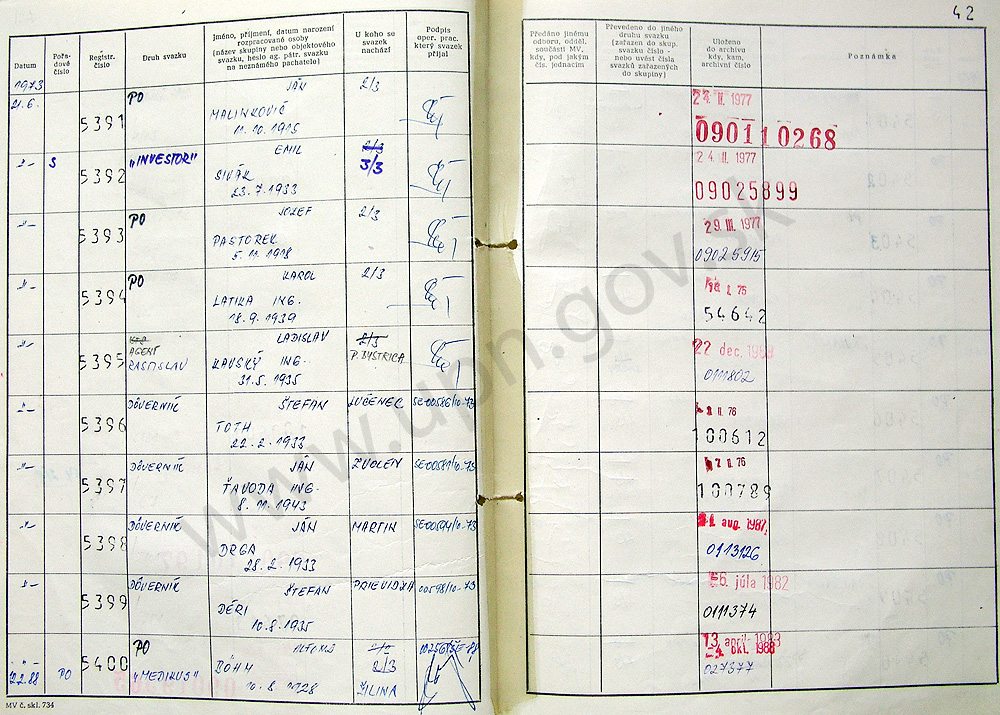 42
Datum
Pořadové číslo
Registr. číslo
Druh svazku
Jméno, příjmení, datum narození rozpracované osoby (název skupiny nebo objektového svazku, heslo ag. pátr. svazku na neznámého pachatele)
U koho se svazek nachází
Podpis oper. prac. který svazek přijal
Předáno jinému odboru, odděl. součásti MV, kdy, pod jakým čís. jednacím
Převedeno do jiného druhu svazku (zařazen do skup. svazku číslo - nebo uvést čísla svazků zařazených do skupiny)
Uloženo do archivu kdy, kam, archivní číslo
Poznámka
1973
21.6. 5391 PO JÁN 2/3 24. II. 1977
MALINKOVIČ 090110268
11.10.1915
-"- S 5392 "INVESTOR" EMIL 2/3 24. II. 1977
SIVÁK 3/3 09025899
23.7.1933
-"- 5393 PO JOZEF 2/3 29. III. 1977
PASTOREK 09025915
5.11.1918
-"- 5394 PO KAROL 2/3 I. 76
LATIKA ING. 54642
18.9.1939
-"- 5395 AGENT LADISLAV 2/3 22 dec.
RASTISLAV KAVSKÝ ING. P. BYSTRICA 0111802
31.5.1935
-"- 5396 DÔVERNÍK ŠTEFAN LUČENEC SE-00586/10-73 II. 76
TOTH 100612
22.2.1933
-"- 5397 DÔVERNÍK JÁN ZVOLEN SE-00587/10-73 II. 76
ŤAVODA ING. 100789
8.11.1943
-"- 5398 DÔVERNÍK JÁN MARTIN SE-00594/10-73 aug. 1987
DRGA 0113126
28.2.1933
-"- 5399 DÔVERNÍK ŠTEFAN PRIEVIDZA 00598/10-73 6. júla 1982
DÉRI 0111374
10.8.1935
-"- 5400 PO ALFONS 2/2 13. apríl 1983
PO "MEDIKUS" BÖHM 2/3 okt. 1988
10.8.1928 ŽILINA 027377
MV č. skl. 734
www.upn.gov.sk